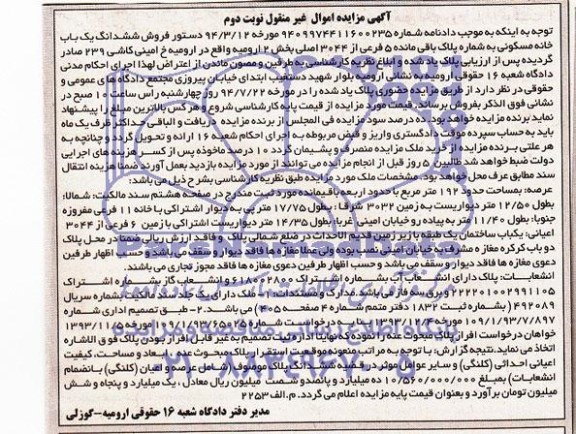 آگهی مزایده اموال غیر منقول نوبت دوم
توجه به اینکه به موجب دادنامه شماره ۹۴۰۹۹۷۴۴۱۱۶۰۰۲۳۵ مورخه ۹۴/۳/۱۲ دستور فروش ششدانگ یک باب
خانه مسکونی به شماره پلاک باقی مانده ۵ فرعی از ۳۰۴۴ اصلی بخش ۲ ارومیه واقع در ارومیه خ امینی کاشی ۲۳۹ صادر
گردیده پس از ارزیابی پلاک یاد شده و ابلاغ نظریه کارشناسی به طرفین و مصون ماندن از اعتراض لهذا اجرای احکام مدنی
دادگاه شعبه ۱۶ حقوقی ارومیه به نشانی ارومیه بلوار شهید دستغیب ابتدای خیابان پیروزی مجتمع دادگاه های عمومی و
حقوقی در نظر دارد از طریق مزایده حضوری پلاک یاد شده را در مورخه ۹۴/۷/۲۲ روز چهارشنبه راس ساعت ۱۰ صبح در
نشانی فوق الذکر بفروش برساند، قیمت مورد مزایده از قیمت پایه کارشناسی شروع و هر کس بالاترین مبلغ را پیشنهاد
نماید برنده مزایده خواهد بود ده درصد سود مزایده فی المجلس از برنده مزایده دریافت و الباقی حداکثر ظرف یک ماه
باید به حساب سپرده موقت دادگستری واریز و فیش مربوطه به اجرای احکام شعبه ۱۶ ارائه و تحویل گردد و چنانچه به
هر علتی برنده مزایده از خرید ملک مزایده منصرف و پشیمان گردد ۱۰ درصد ماخوذه پس از کسر هزینه های اجرایی
دولت ضبط خواهد شد طالبین ۵ روز قبل از انجام مزایده می توانند از مورد مزایده بازدید بعمل آورند ضمنا هزینه انتقال
سند مطابق عرف محل خواهد بود. مشخصات ملک مورد مزایده طبق نظریه کارشناسی بشرح ذیل می باشد:
عرصه: بمساحت حدود ۱۹۲ متر مربع با حدود اربعه باقیمانده مورد ثبت مندرج در صفحه هشتم سند مالکیت: شمالا:
بطول ۱۲/۵۰ متر دیواریست به زمین ۳۰۳۲ شرقا: بطول ۱۷/۷۵ متر پی به دیوار اشتراکی با خانه ۱۱ فرعی مفروزه
جنوبا: بطول ۱۱/۴۰ متر به پیاده رو خیابان امینی غربا: بطول ۱۴/۳۵ متر دیواریست اشتراکی با زمین ۶ فرعی از ۳۰۴۴
اعیانی: یکباب ساختمان یک طبقه با زیر زمین قدیم الاحداث در ضلع شمالی پلاک و فاقد ارزش ریالی ضمنا در محل پلاک
دو باب کرکره مغازه مشرف به خیابان امینی نصب بوده ولی عملا مغازه ها فاقد دیوار و سقف می باشد و حسب اظهار طرفین
دعوی مغازه ها فاقد دیوار و سقف می باشد و حسب اظهار طرفین دعوی مغازه ها فاقد مجوز تجاری می باشند.
انشعابات: پلاک دارای انشعاب آب بشماره اشتراک ۶۱۸۰۰۶۲۸۰۰ و انشعاب گاز بشماره اشتراک
و برق سه فاز می باشد. مدارک و مستندات: ۱- ملک دارای یک جلد سند مالکیت بشماره سریال
۴۹۲۰۸۹ (بشماره ثبت ۱۸۳۲ دفتر متمم شماره ۴ صفحه ۴۰۵) می باشد. ۲- طبق تصمیم اداری شماره
خواهان درخواست افراز پلاک مبحوث عنه را نموده که نهایتا اداره ثبت تصمیم به غیر قابل افراز بودن پلاک فوق الاشاره
اتخاذ می نماید. نتیجه گزارش: با توجه به مراتب معنونه موقعیت استقرار پلاک مبحوث عنه، ابعاد و مساحت، کیفیت
انشعابات) بمبلغ ۱۰/۵۶۰/۰۰۰/۰۰۰ ده میلیارد و پانصد و شصت میلیون ریال معادل ، یک میلیارد و پنجاه و شش
میلیون تومان برآورد و بعنوان قیمت پایه مزایده اعلام می گردد. م.الف ۲۲۵۳
مدیر دفتر دادگاه شعبه ۱۶ حقوقی ارومیه-گوزلی